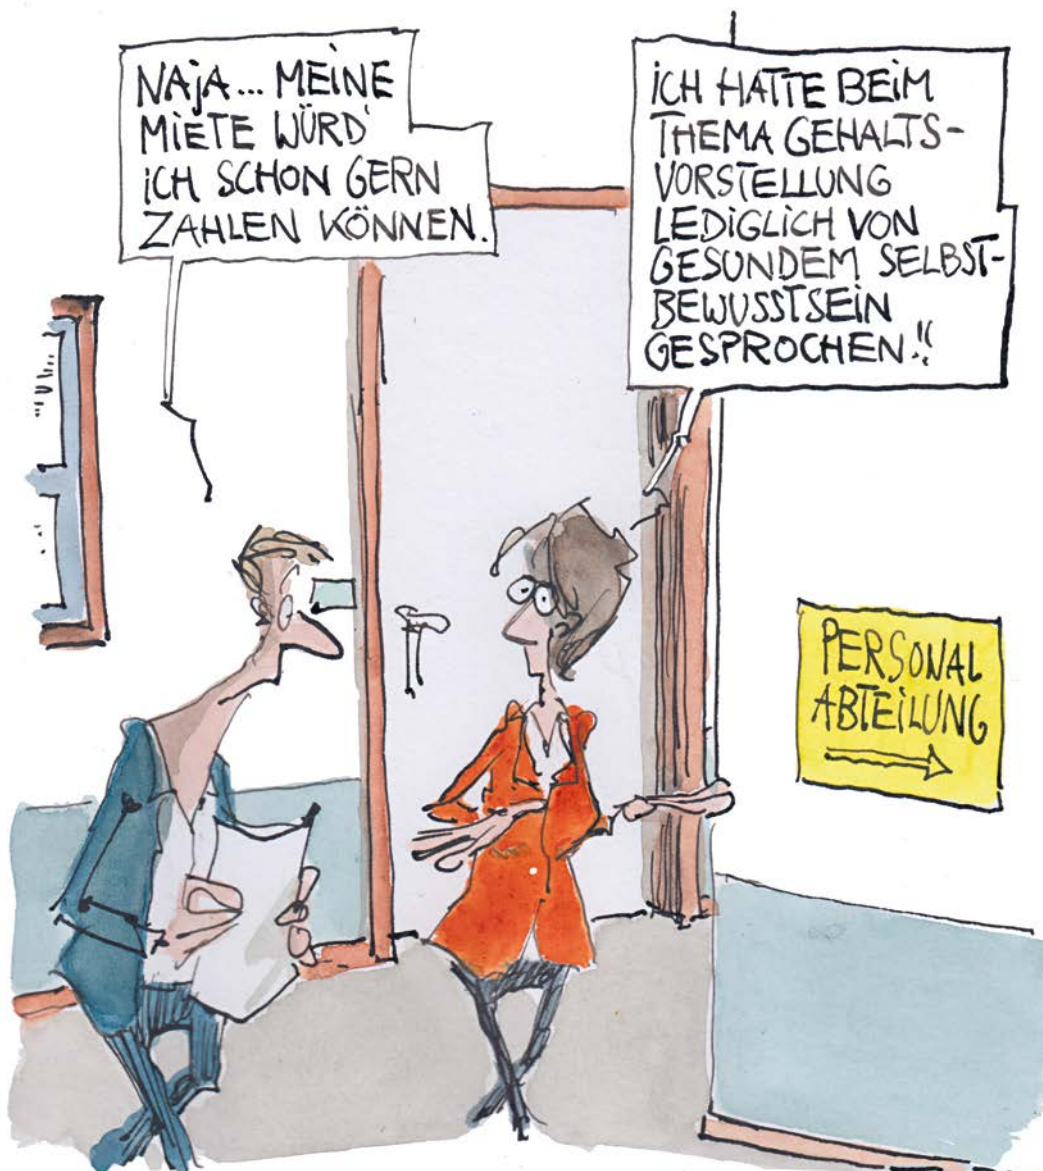 NAJA... MEINE
MIETE WÜRD'
ICH SCHON GERN
ZAHLEN KÖNNEN.
ICH HATTE BEIM
THEMA GEHALTS-
VORSTELLUNG
LEDIGLICH VON
GESUNDEM SELBST-
BEWUSSTSEIN
GESPROCHEN!!
PERSONAL
ABTEILUNG